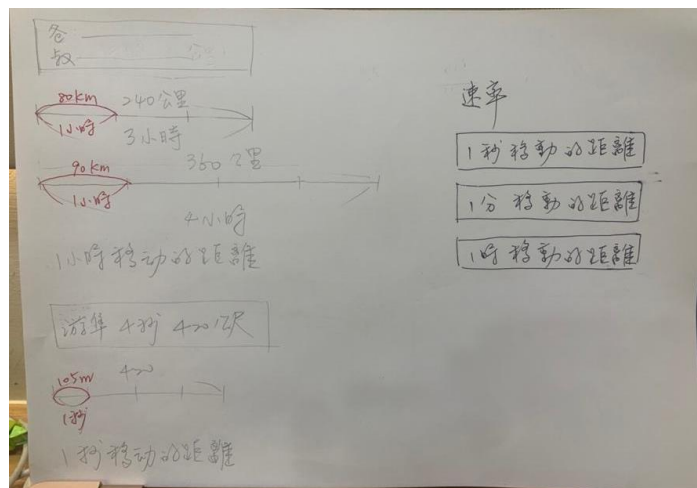 80km
240公里
1小時
3小時
90km
360公里
1小時
4小時
1小時移动的距離
游隼 4秒 420公尺
105m
420
1秒
1秒移动的距離
速率
1秒移動的距離
1分移動的距離
1时移動的距離